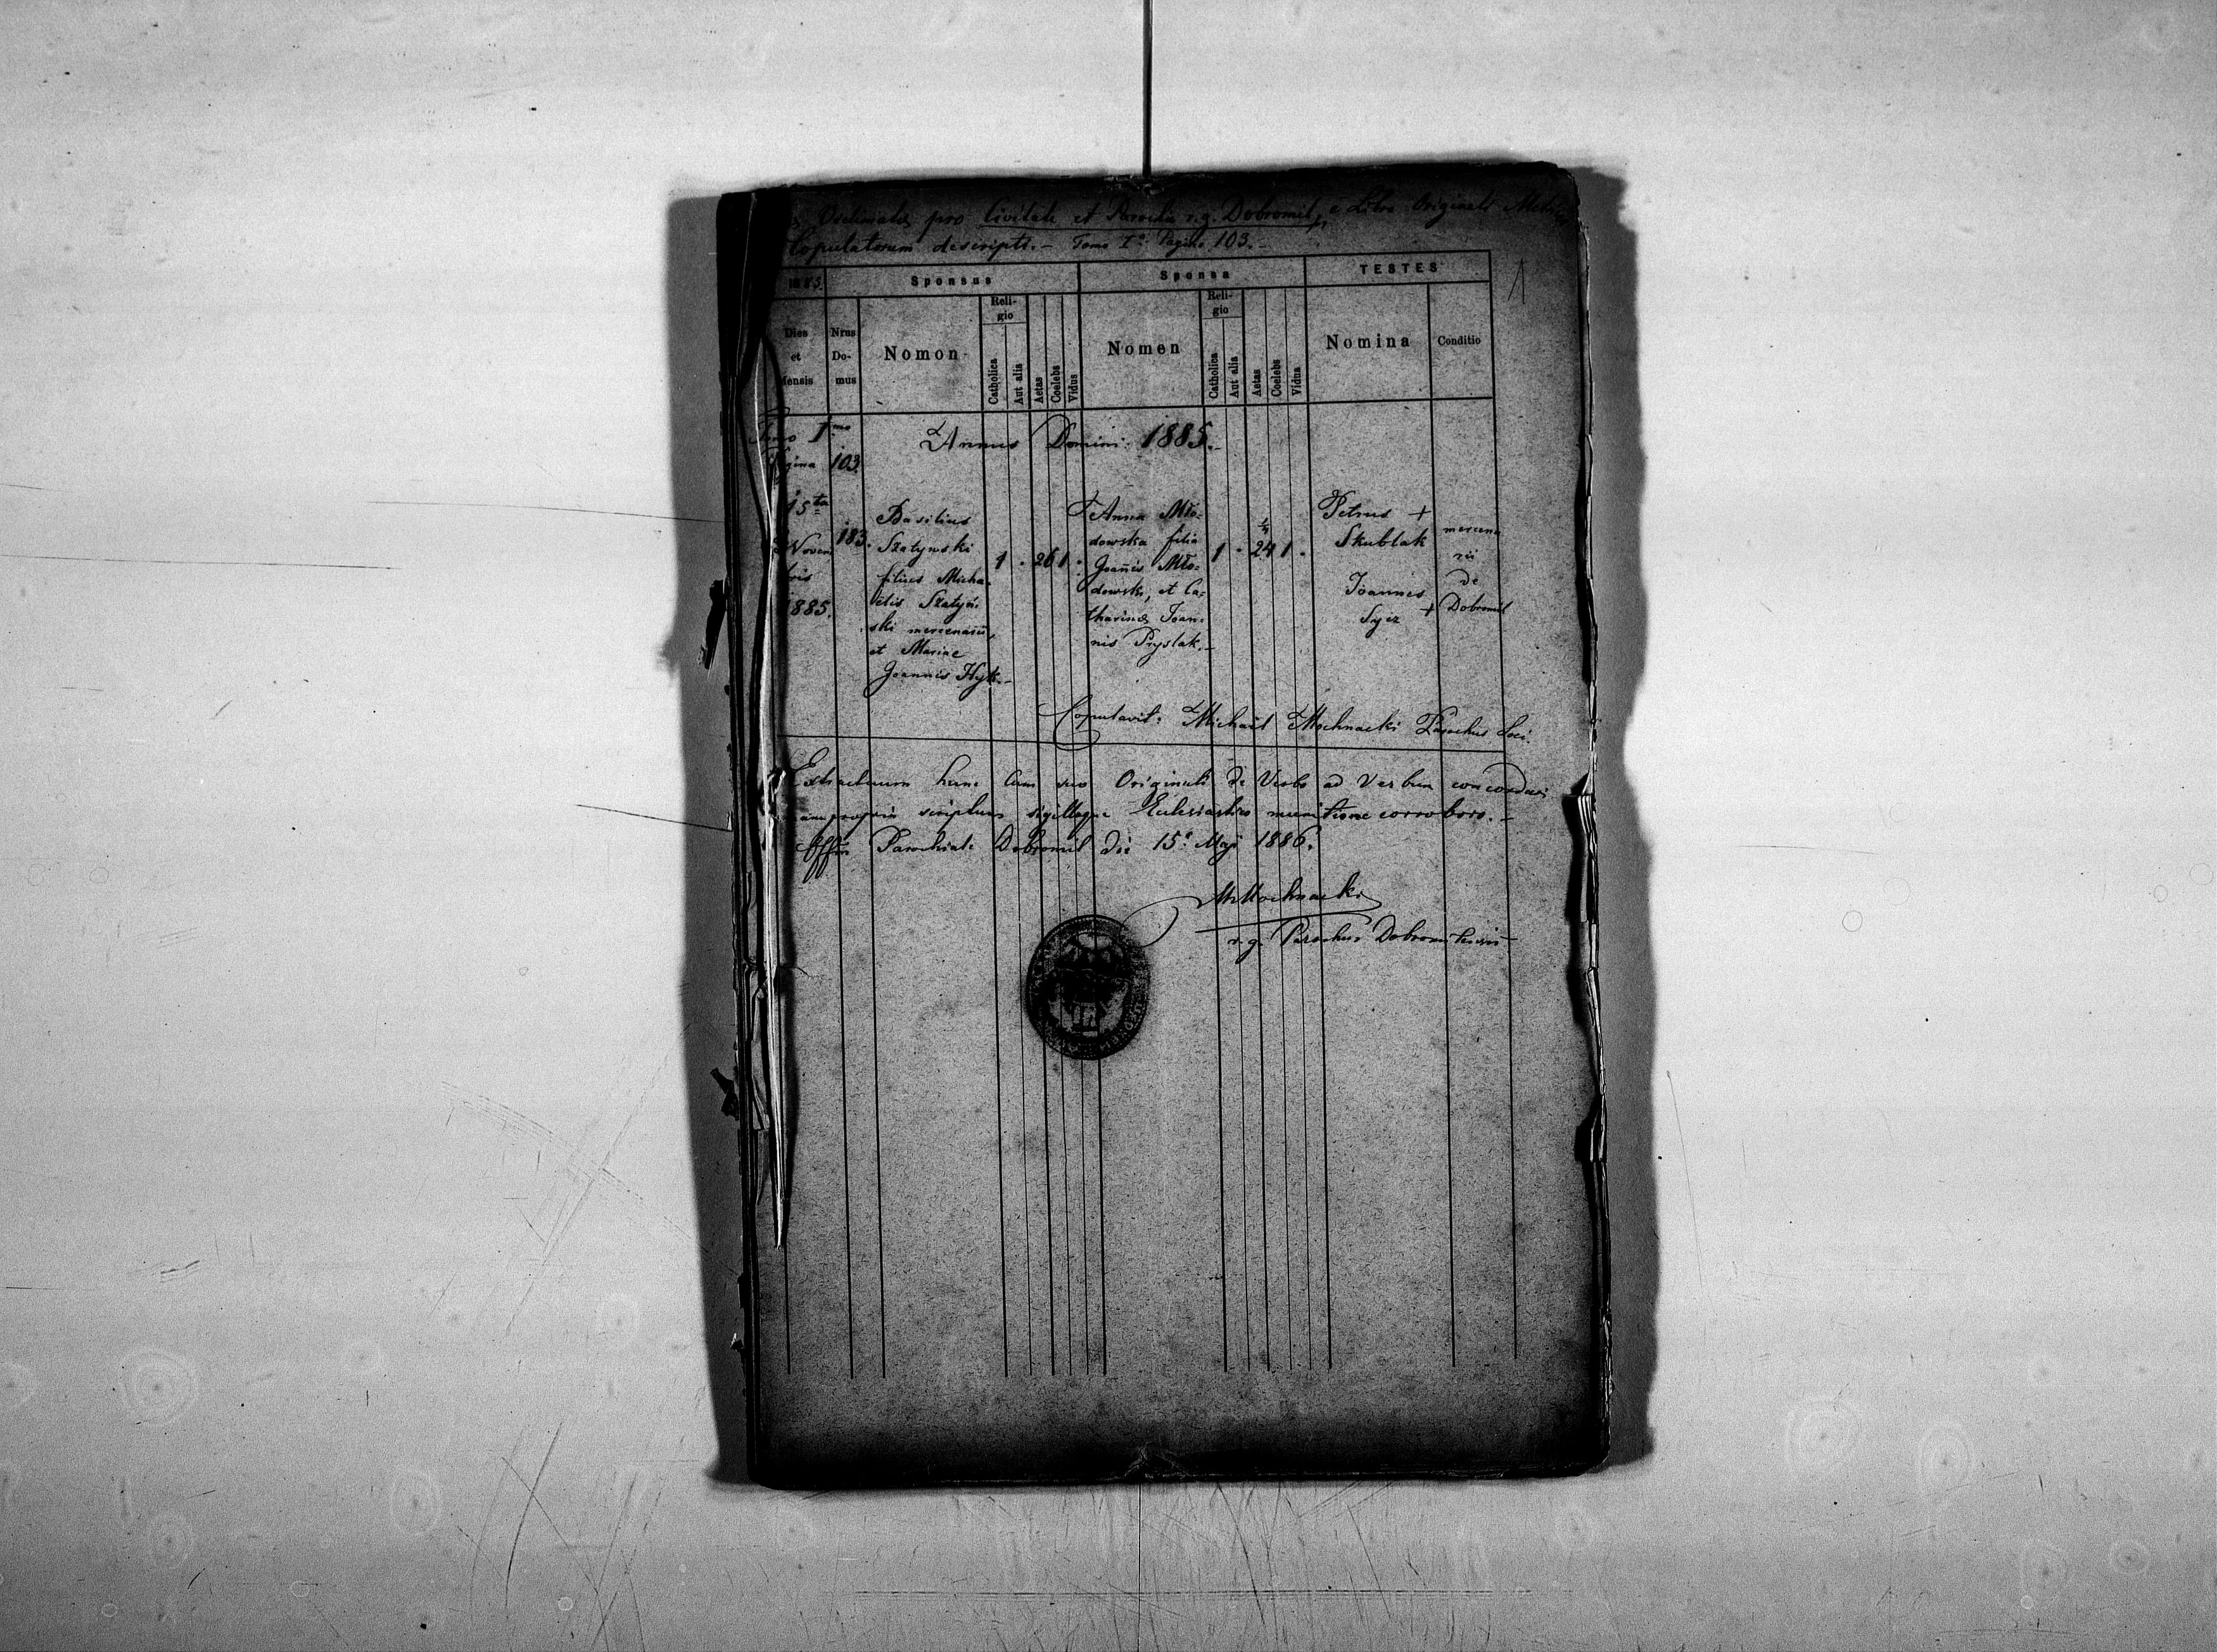 pro Civitate et Parochia r. g. Dobromil, e Libro Originali
Copulatorum descripti.- Tomo I° Pagina 103.-
1885.
Sponsus
Sponsa
TESTES
1
Dies
et
Mensis
Nrus
Do-
mus
Nomon
Reli-
gio
Catholica
Aut alia
Aetas
Coelebs
Vidus
Nomen
Reli-
gio
Catholica
Aut alia
Aetas
Coelebs
Vidua
Nomina
Conditio
Tomo I mo
Pagina 103.
Annus Domini 1885.-
15ta
Novem
bris
1885.
183.
Basilius
Szatyński
filius Micha-
elis Szatyń-
ski mercenarii,
et Mariae
Joannis Hyk.-
1 - 26 1 -
Anna Mło-
dowska filia
Joannis Mło-
dowski, et Ca-
tharinae Joan-
nis Pryslak.-
1 - 24 1 -
Petrus +
Skublak
Joannes
+
mercena
rii
de
Dobromil
Copulavit: Michael Mochnacki Parochus Loci.
Extractum hunc cum suo Originali de Verbo ad Verbum concordari
scriptum sigilloque Ecclesiastico munitione corroboro.-
Offm Parochiale Dobromil die 15° Maji 1886.
MMochnacki
r. g. Parochus Dobromiliensis